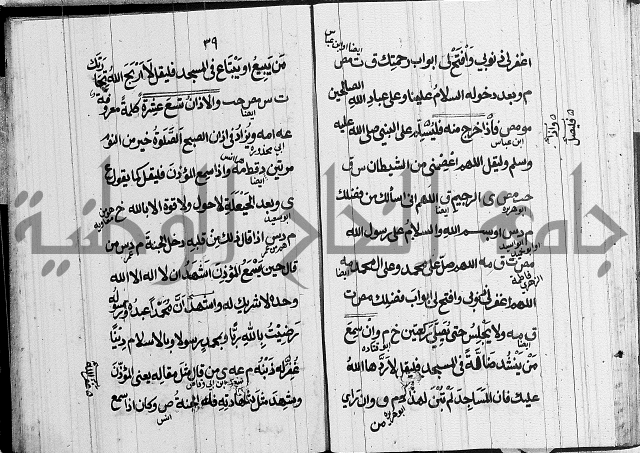 اغفر لي ذنوبي وافتح لي ابواب رحمتك ق ت مص
م وبعد دخوله السلام علينا وعلى عباد الله الصالحين
مو مص فاذا خرج منه فليسلم على النبي صلى الله عليه
وسلم وليقل اللهم اعصمني من الشيطان س ق
الرجيم ق اللهم اني اسالك من فضلك
م د س او بسم الله والسلام على رسول الله
مص ت ق مه اللهم صل على محمد وعلى آل محمد مه
اللهم اغفر لي ذنوبي وافتح لي ابواب فضلك مص ت
ق مه ولا يجلس حتى يصلي ركعتين خ م وان سمع
من ينشد ضالة في المسجد فليقل لا ردها الله
عليك فان المساجد لم تبن لهذا م د ق وان راى
من
٣٩
من يبيع او يبتاع في المسجد فليقل لا اربح الله تجارتك
ت س مص حب والاذان تسع عشرة كلمة معروفة
عه امه ويزاد في اذان الصبح الصلوة خير من النوم
مرتين د قط مه واذا سمع المؤذن فليقل كما يقول ع
ى وبعد الحيعلة لا حول ولا قوة الا بالله خ
م د س اذا قال ذلك من قلبه دخل الجنة م د س من
قال حين يسمع المؤذن اشهد ان لا اله الا الله
وحده لا شريك له واشهد ان محمدا عبده ورسوله
رضيت بالله ربا وبمحمد رسولا وبالاسلام دينا
غفر له ذنبه م عه ى من قال مثل مقاله يعني المؤذن
وشهد مثل شهادته فله الجنة ص وكان اذا سمع
جامعة النجاح الوطنية